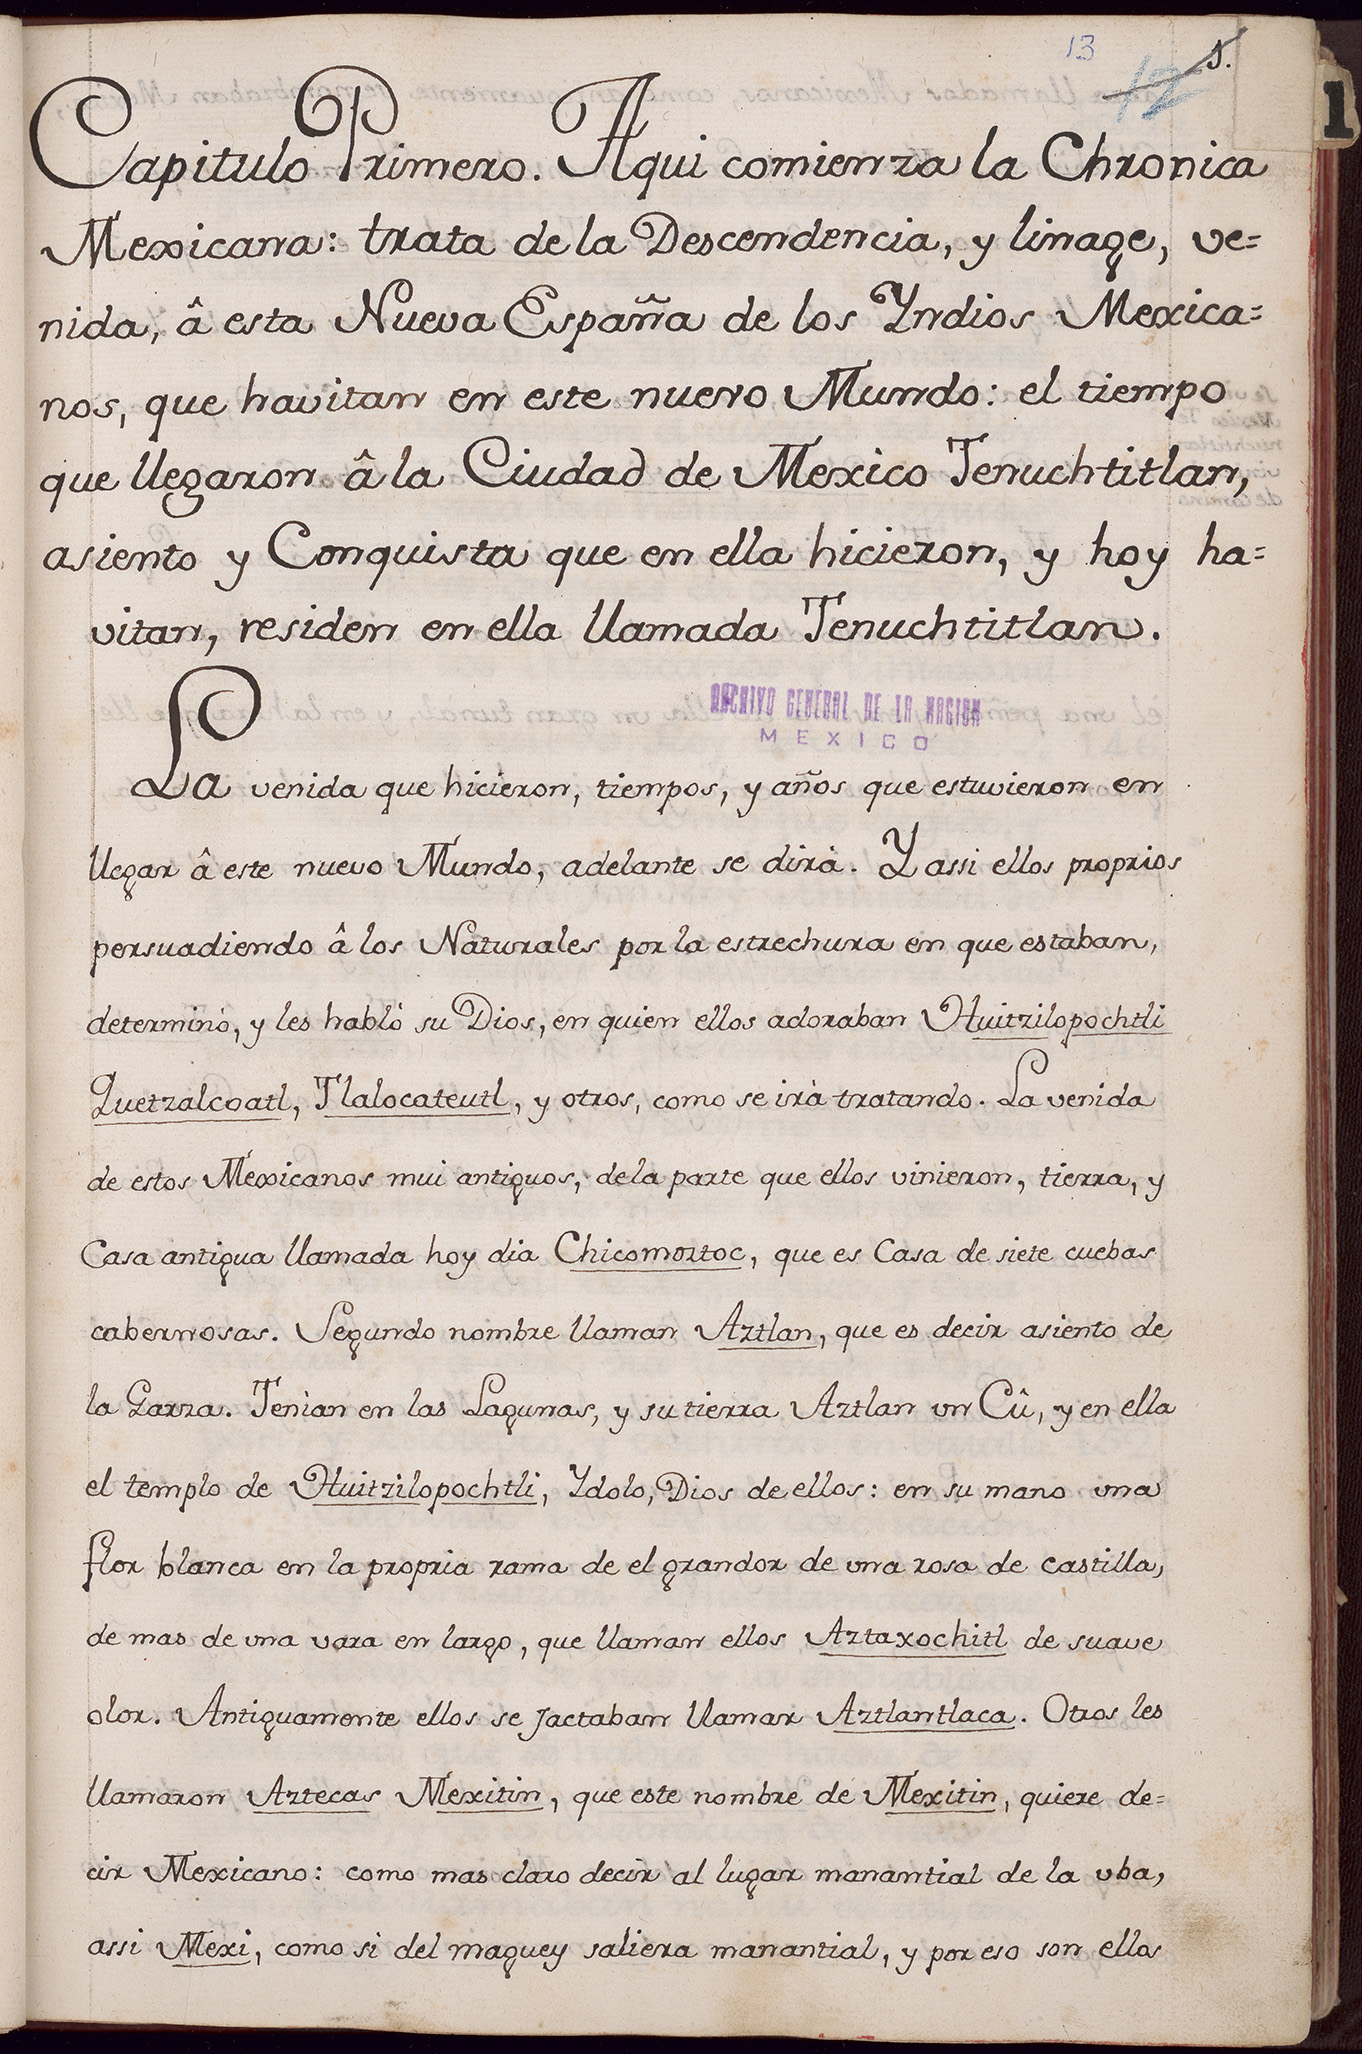 13
12
1.
1
Capitulo Primero. Aqui comienza la Chronica
Mexicana: trata de la Descendencia, y linage, ve=
nida, â esta Nueva España de los Yndios Mexica=
nos, que havitan en este nuevo Mundo: el tiempo
que llegaron â la Ciudad de Mexico Tenuchtitlan,
asiento y Conquista que en ella hicieron, y hoy ha=
vitan, residen en ella llamada Tenuchtitlan.
ARCHIVO GENERAL DE LA NACION
MEXICO
La venida que hicieron, tiempos, y años que estuvieron en
llegar â este nuevo Mundo, adelante se dirà. Y assi ellos proprios
persuadiendo â los Naturales por la estrechura en que estaban,
determinò, y les hablò su Dios, en quien ellos adoraban Huitzilopochtli
Quetzalcoatl, Tlalocateutl, y otros, como se irà tratando. La venida
de estos Mexicanos mui antiguos, de la parte que ellos vinieron, tierra, y
Casa antigua llamada hoy dia Chicomoztoc, que es Casa de siete cuebas
cabernosas. Segundo nombre llaman Aztlan, que es decir asiento de
la Garza. Tenian en las Lagunas, y su tierra Aztlan un Cû, y en ella
el templo de Huitzilopochtli, Ydolo, Dios de ellos: en su mano una
flor blanca en la propria rama de el grandor de una rosa de castilla,
de mas de una vara en largo, que llaman ellos Aztaxochitl de suave
olor. Antiguamente ellos se jactaban llamar Aztlantlaca. Otros les
llamaron Aztecas Mexitin, que este nombre de Mexitin, quiere de=
cir Mexicano: como mas claro decir al lugar manantial de la uba,
assi Mexi, como si del maguey saliera manantial, y por eso son ellos